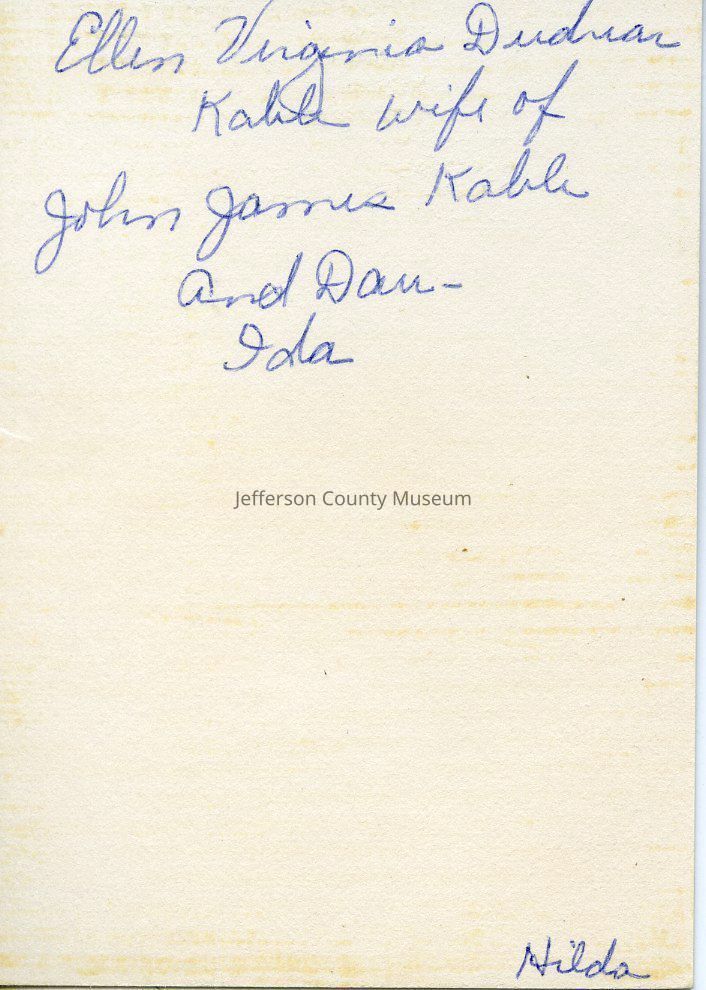 Ellen Virginia Dudrear
Kable wife of
John James Kable
and Dau-
Ida
Jefferson County Museum
Hilda